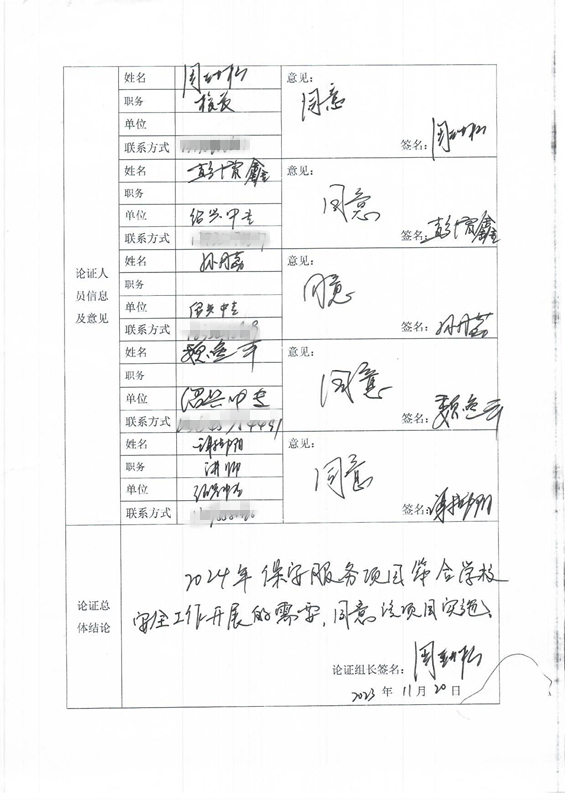 论证人
员信息
及意见
姓名
职务 校长
单位
联系方式
意见：
同意
签名：
姓名
职务
单位 绍兴中专
联系方式
意见：
同意
签名：
姓名 孙丹荔
职务
单位 绍兴中专
联系方式
意见：
同意
签名：孙丹荔
姓名
职务
单位 绍兴中专
联系方式
意见：
同意
签名：
姓名
职务 讲师
单位 绍兴中专
联系方式
意见：
同意
签名：
论证总
体结论
2024年保安服务项目符合学校
安全工作开展的需要，同意该项目实施。
论证组长签名：
2023 年 11 月 20 日